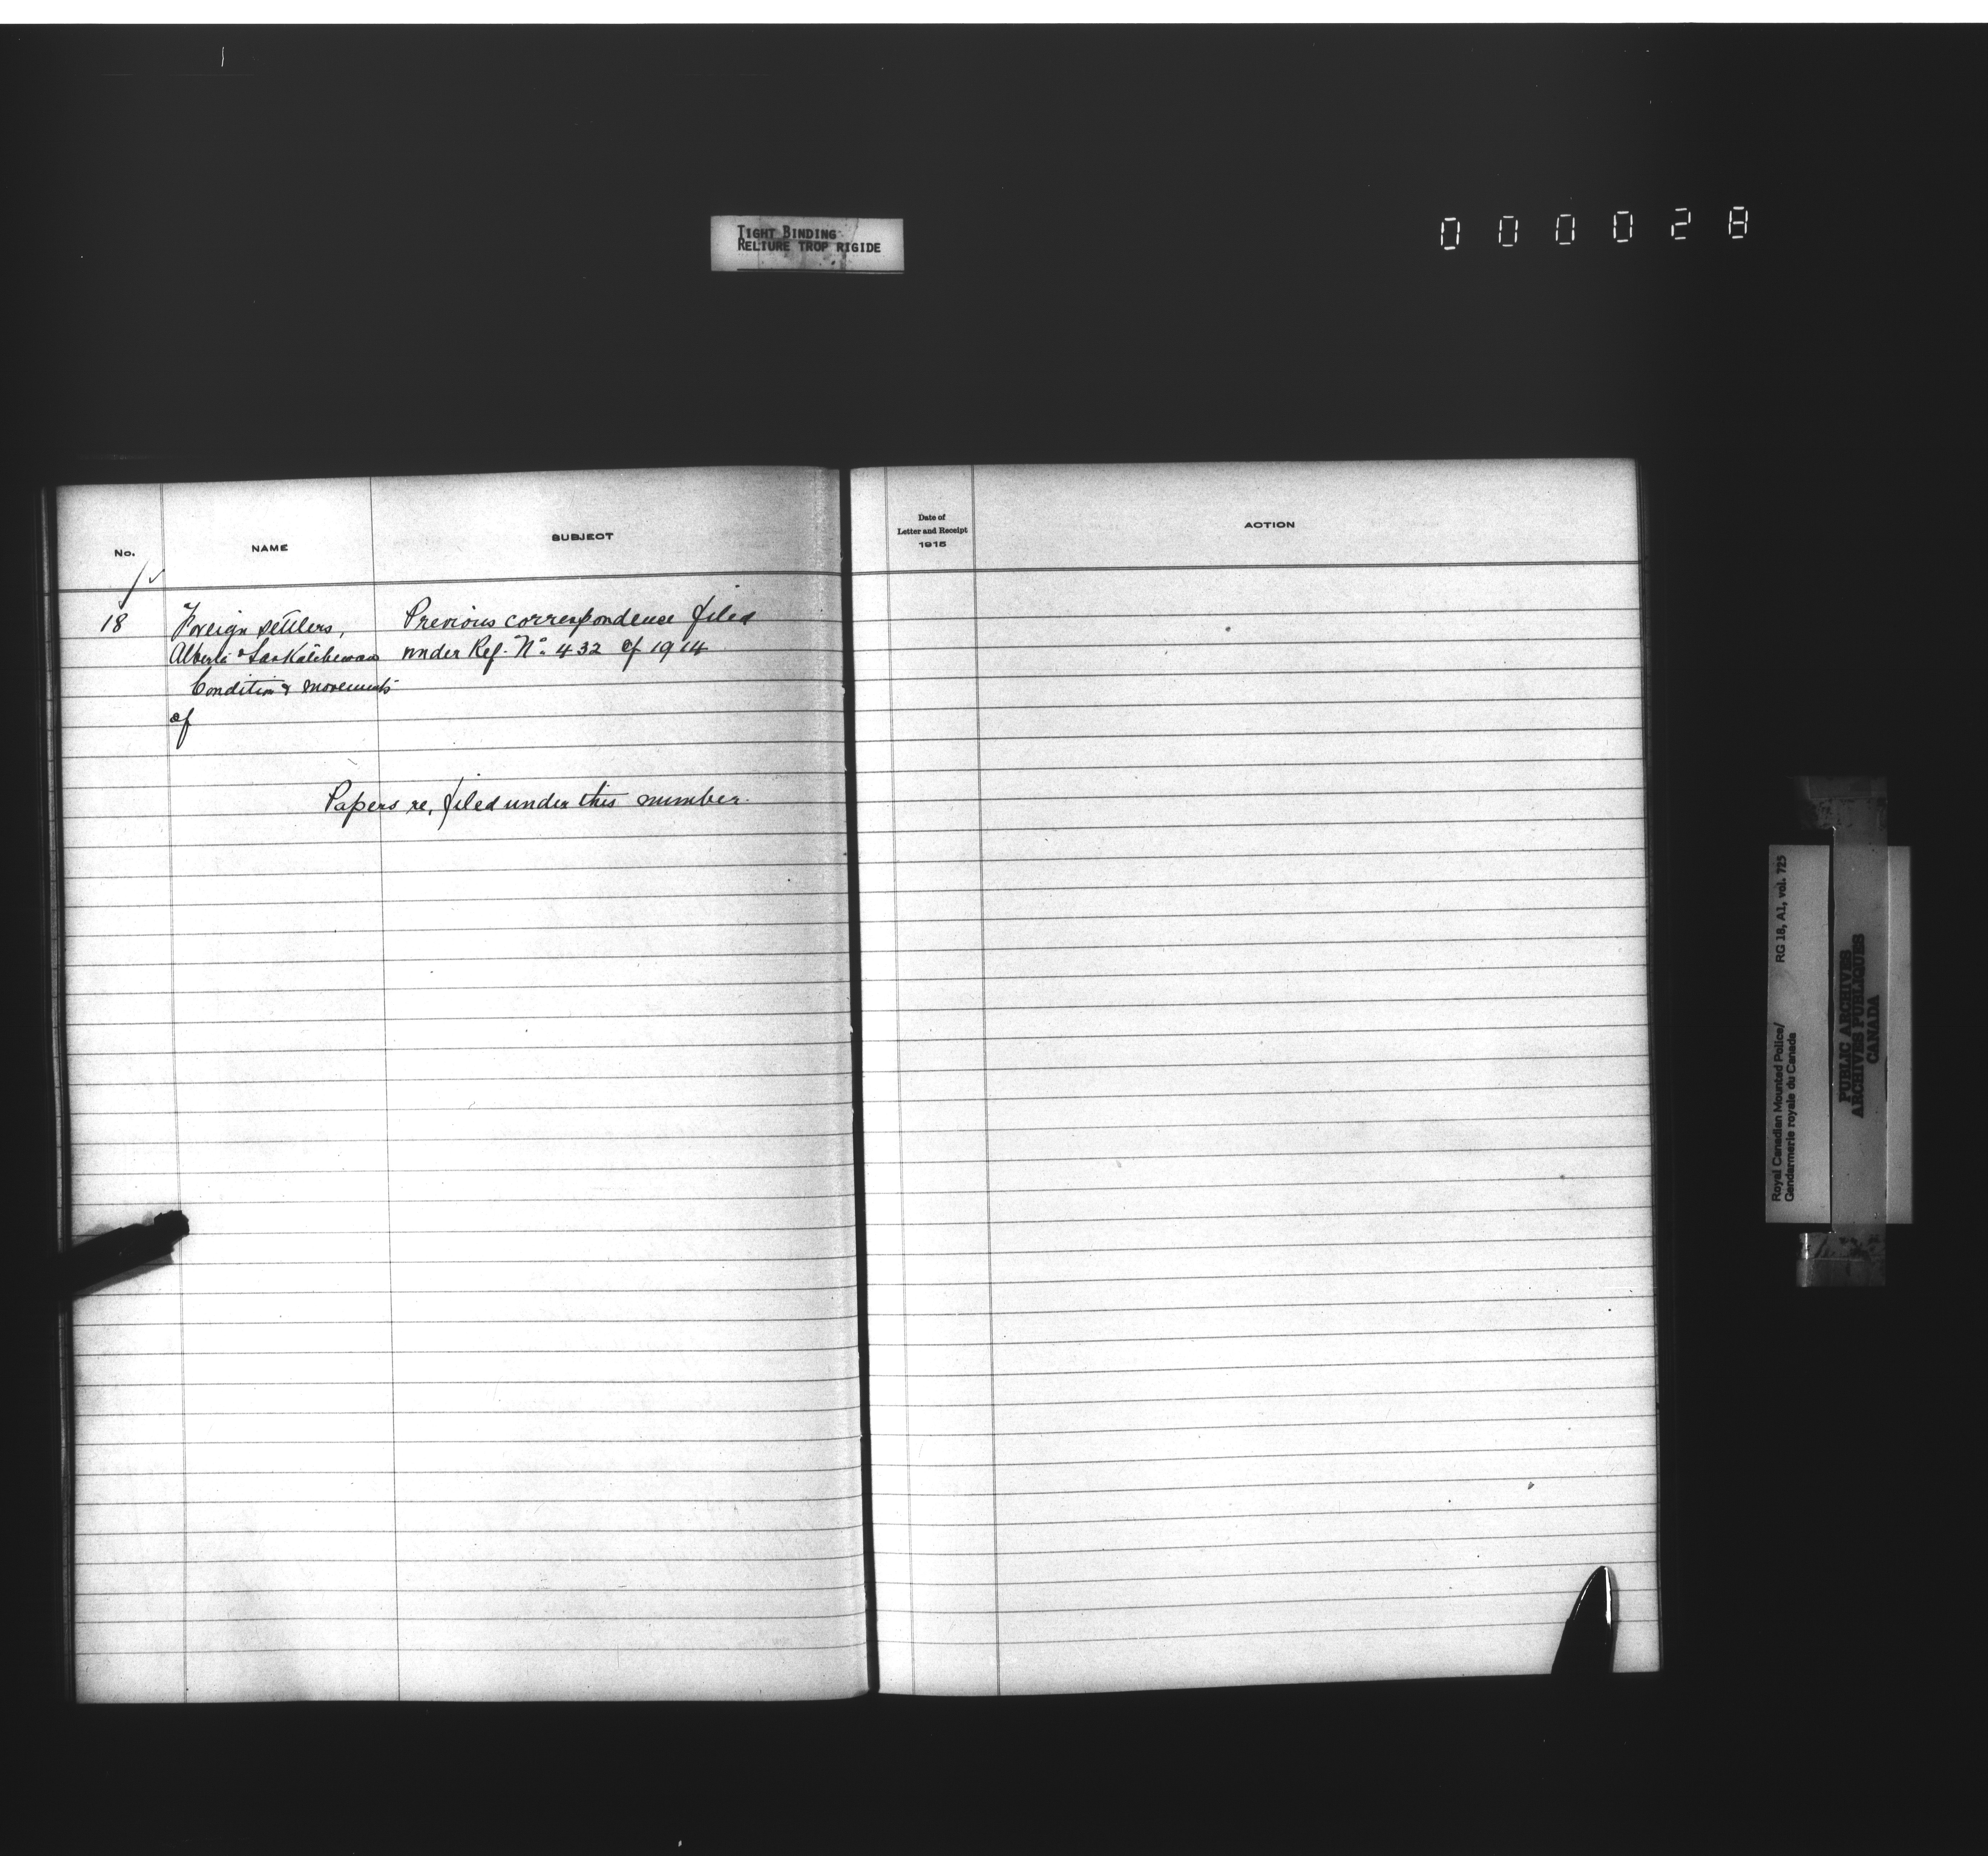 TIGHT BINDING
RELIURE TROP RIGIDE
0 0 0 0 2 8
No. NAME SUBJECT
Date of
Letter and Receipt
1915
ACTION
18 Foreign settlers, Previous correspondence filed
Alberta & Saskatchewan under Ref. No. 432 of 1914
Condition & movements
of
Papers re, filed under this number.
Royal Canadian Mounted Police/ RG 18, A1, vol. 725
Gendarmerie royale du Canada
PUBLIC ARCHIVES
ARCHIVES PUBLIQUES
CANADA